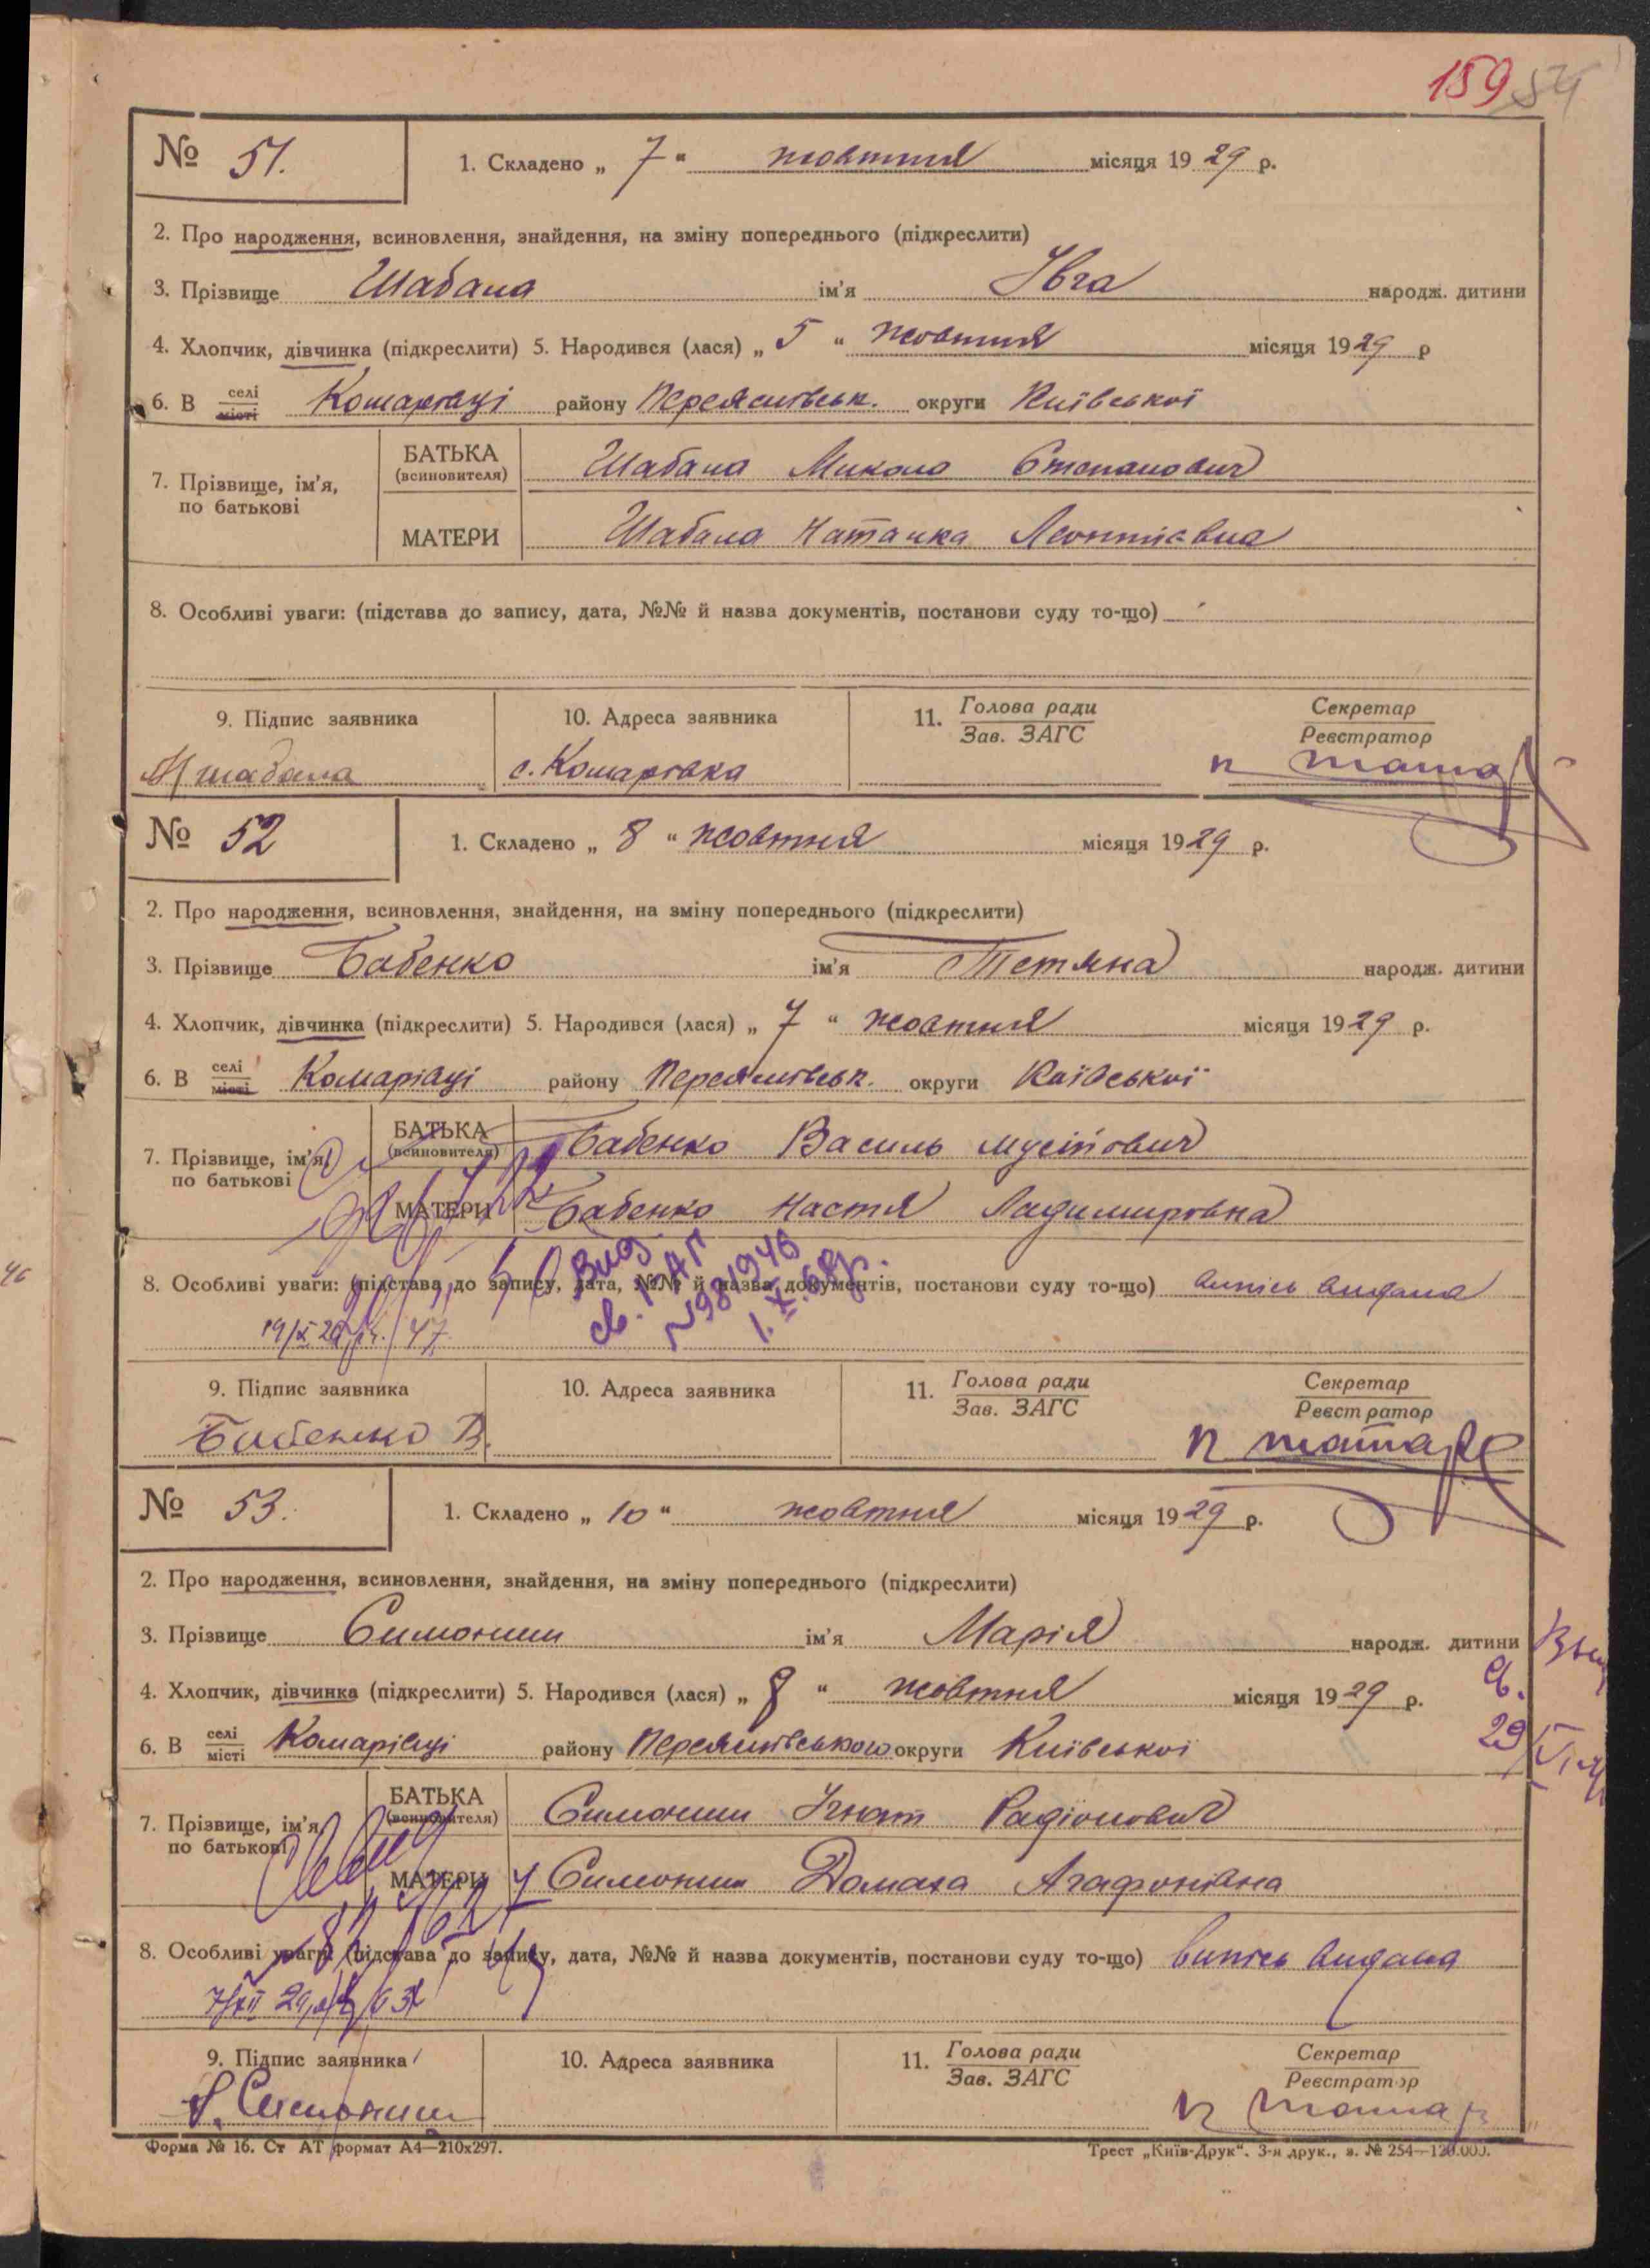 159 54
№ 51. 1. Складено „ 7 “ жовтня місяця 19 29 р.
2. Про народження, всиновлення, знайдення, на зміну попереднього (підкреслити)
3. Прізвище Шабала ім'я Івга народж. дитини
4. Хлопчик, дівчинка (підкреслити) 5. Народився (лася) „ 5 “ жовтня місяця 19 29 р
6. В селі місті Комарівці району Переяслівськ. округи Київської
7. Прізвище, ім'я, по батькові
БАТЬКА (всиновителя) Шабала Микола Степанович
МАТЕРИ Шабала Наталка Леонтієвна
8. Особливі уваги: (підстава до запису, дата, №№ й назва документів, постанови суду то-що)
9. Підпис заявника 10. Адреса заявника 11. Голова ради Зав. ЗАГС Секретар Реєстратор
Шабала с. Комаровка
№ 52 1. Складено „ 8 “ жовтня місяця 19 29 р.
2. Про народження, всиновлення, знайдення, на зміну попереднього (підкреслити)
3. Прізвище Бабенко ім'я Тетяна народж. дитини
4. Хлопчик, дівчинка (підкреслити) 5. Народився (лася) „ 7 “ жовтня місяця 19 29 р.
6. В селі місті Комарівці району Переяслівськ. округи Київської
7. Прізвище, ім'я, по батькові
БАТЬКА (всиновителя) Бабенко Василь Мусійович
МАТЕРИ Бабенко Настя Ладимировна
8. Особливі уваги: (підстава до запису, дата, №№ й назва документів, постанови суду то-що) випісь видана
19/X 29 47
9. Підпис заявника 10. Адреса заявника 11. Голова ради Зав. ЗАГС Секретар Реєстратор
Бабенко В.
№ 53. 1. Складено „ 10 “ жовтня місяця 19 29 р.
2. Про народження, всиновлення, знайдення, на зміну попереднього (підкреслити)
3. Прізвище Симониш ім'я Марія народж. дитини
4. Хлопчик, дівчинка (підкреслити) 5. Народився (лася) „ 8 “ жовтня місяця 19 29 р.
6. В селі місті Комарівці району Переяслівського округи Київської
7. Прізвище, ім'я по батькові
БАТЬКА (всиновителя) Симониш Ігнат Радіонович
МАТЕРИ Симониш Домаха Агафонівна
8. Особливі уваги: (підстава до запису, дата, №№ й назва документів, постанови суду то-що) випісь видана
7/XII 29
9. Підпис заявника 10. Адреса заявника 11. Голова ради Зав. ЗАГС Секретар Реєстратор
Симониш
Форма № 16. Ст АТ формат А4—210х297. Трест „Київ-Друк“. 3-я друк., з. № 254—120.000.